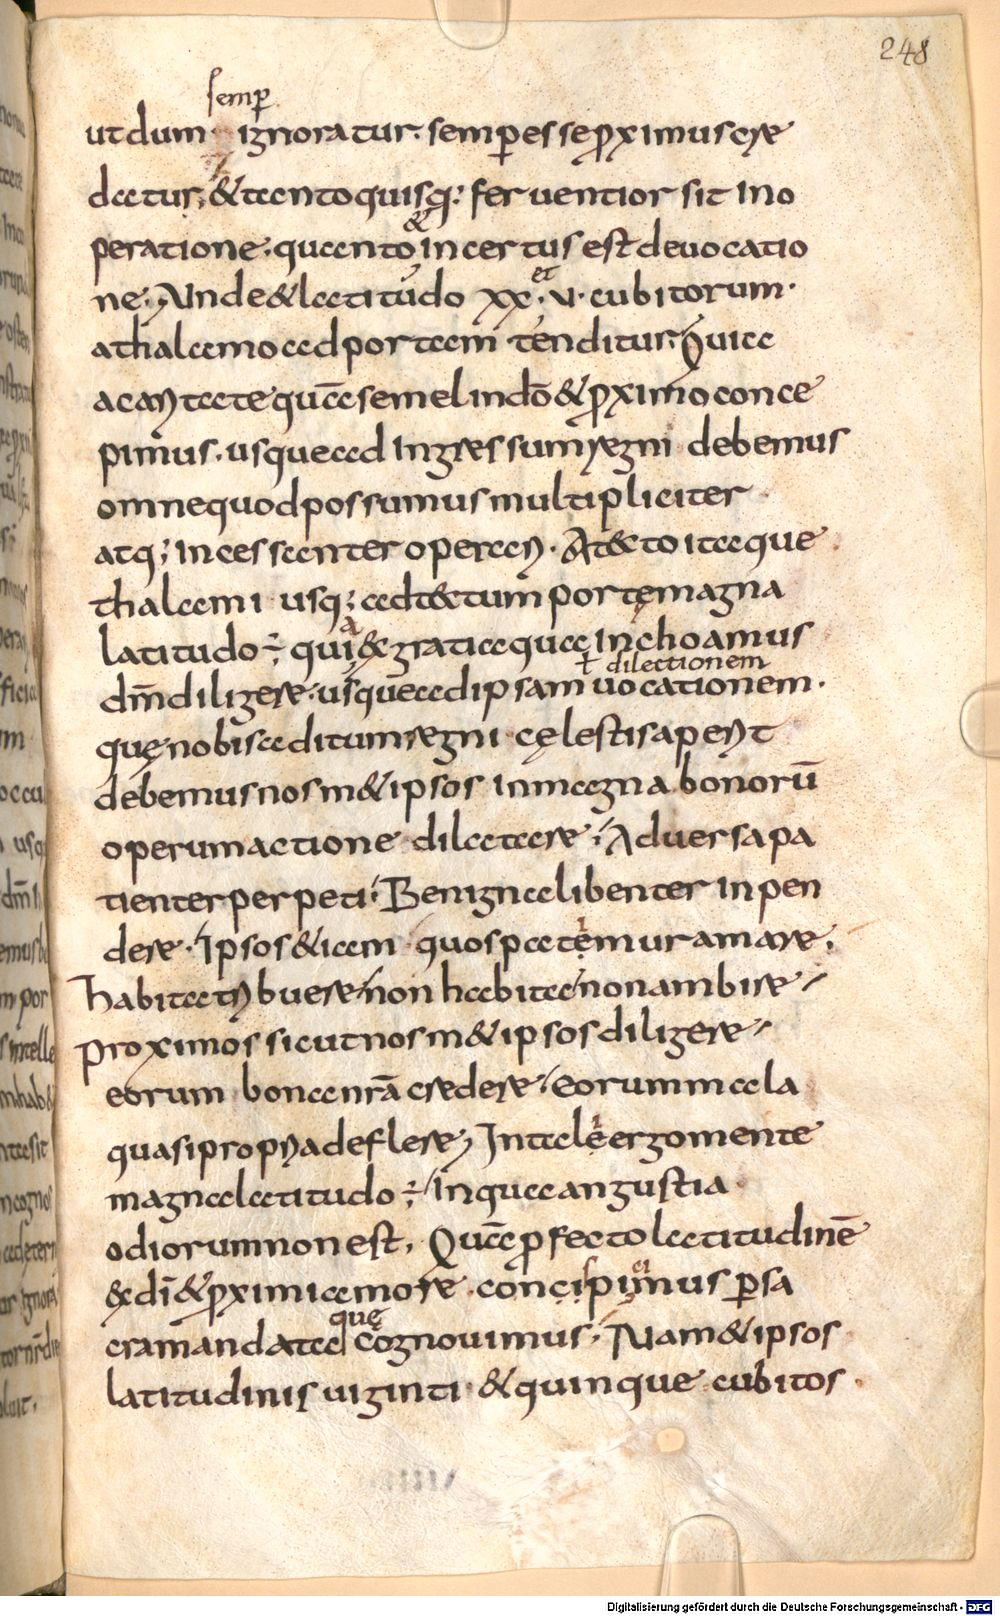 248
semp
ut dum ignoratur. semp esse pximus cre
datur; & tanto quisq; ferventior sit in o
peratione. quanto & incertus est de uocatio
ne; Unde & latitudo xx. et v. cubitorum.
a thalamo ad portam tenditur. Quia
a caritate qua semel in do & pximo conce
pimus. usque ad ingressum regni debemus
omne quod possumus multipliciter
atq; incessanter operari. At & to itaque
thalami usq; ad tectum portę magna
latitudo ÷; quia & gratia qua inchoamus
dm diligere. usque ad ipsam uocationem.
ł dilectionem
quę nobis aditum regni cęlestis aperit
debemus nosm & ipsos in magna bonoru
operum actione dilatare; Aduersa pa
tienter perpeti; Benigna libenter inpen
dere. Ipsos & iam quos patemur amare,
habita tribuere non habita non ambire
proximos sicut nosm & ipsos diligere
eorum bona nra credere; eorum mala
quasi propria deflere; In tale ergo mente
magna latitudo ÷; In qua angustia
odiorum non est, Qua pfecto latitudine
& di & pximi amore. concipimus p sa
cra mandata quę cognouimus; Nam & ipsos
latitudinis uiginti & quinque cubitos.
Digitalisierung gefördert durch die Deutsche Forschungsgemeinschaft - DFG